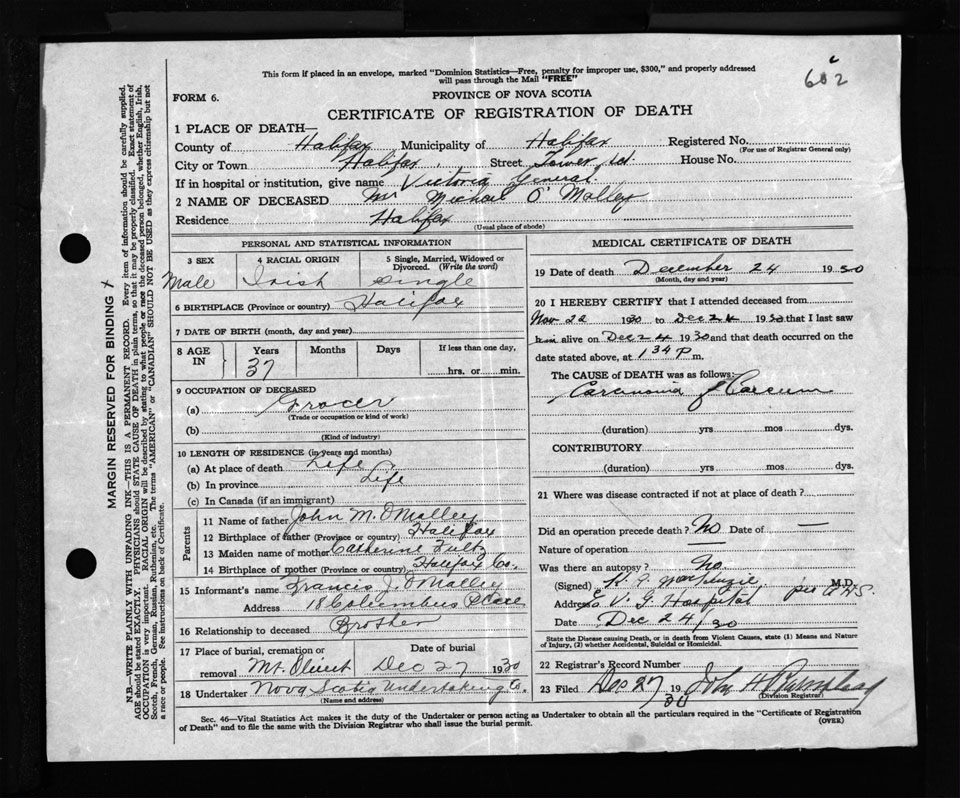 602
This form if placed in an envelope, marked "Dominion Statistics—Free, penalty for improper use, $300," and properly addressed
will pass through the Mail "FREE"
FORM 6.
PROVINCE OF NOVA SCOTIA
CERTIFICATE OF REGISTRATION OF DEATH
1 PLACE OF DEATH—
County of Halifax Municipality of Halifax Registered No.
(For use of Registrar General only)
City or Town Halifax Street Tower Rd. House No.
If in hospital or institution, give name Victoria General
2 NAME OF DECEASED Mr Michael O'Malley
Residence Halifax
(Usual place of abode)
PERSONAL AND STATISTICAL INFORMATION
3 SEX
Male
4 RACIAL ORIGIN
Irish
5 Single, Married, Widowed or
Divorced. (Write the word)
Single
6 BIRTHPLACE (Province or country) Halifax
7 DATE OF BIRTH (month, day and year)
8 AGE
IN
Years
37
Months
Days
If less than one day,
hrs. or min.
9 OCCUPATION OF DECEASED
(a) Grocer
(Trade or occupation or kind of work)
(b)
(Kind of industry)
10 LENGTH OF RESIDENCE (in years and months)
(a) At place of death Life
(b) In province Life
(c) In Canada (if an immigrant)
Parents
11 Name of father John M. O'Malley
12 Birthplace of father (Province or country) Halifax
13 Maiden name of mother Catherine Fultz
14 Birthplace of mother (Province or country) Halifax Co.
15 Informant's name Francis J. O'Malley
Address 18 Columbus Place
16 Relationship to deceased Brother
17 Place of burial, cremation or
removal Mt. Olivet
Date of burial
Dec 27 1930
18 Undertaker Nova Scotia Undertaking Co.
(Name and address)
MEDICAL CERTIFICATE OF DEATH
19 Date of death December 24 1930
(Month, day and year)
20 I HEREBY CERTIFY that I attended deceased from
Nov 22 1930 to Dec 24 1930 that I last saw
him alive on Dec 24 1930 and that death occurred on the
date stated above, at 1 34 P m.
The CAUSE of DEATH was as follows:
Carcinoma of Caecum
(duration) yrs mos dys.
CONTRIBUTORY
(duration) yrs mos dys.
21 Where was disease contracted if not at place of death?
Did an operation precede death? No Date of —
Nature of operation
Was there an autopsy? No
(Signed) K. MacKenzie per M.D.
Address V. G. Hospital
Date Dec 24/30
State the Disease causing Death, or in death from Violent Causes, state (1) Means and Nature
of Injury, (2) whether Accidental, Suicidal or Homicidal.
22 Registrar's Record Number
23 Filed Dec 27 1930 John H
(Division Registrar)
Sec. 46—Vital Statistics Act makes it the duty of the Undertaker or person acting as Undertaker to obtain all the particulars required in the "Certificate of Registration
of Death" and to file the same with the Division Registrar who shall issue the burial permit.
(OVER)
MARGIN RESERVED FOR BINDING
N.B.—WRITE PLAINLY WITH UNFADING INK—THIS IS A PERMANENT RECORD. Every item of information should be carefully supplied.
AGE should be stated EXACTLY. PHYSICIANS should STATE CAUSE OF DEATH in plain terms, so that it may be properly classified. Exact statement of
OCCUPATION is very important. RACIAL ORIGIN will be described by stating to what people or race the deceased person belonged, whether English, Irish,
Scotch, French, German, Russian, Ruthenian, etc. The terms "AMERICAN" or "CANADIAN" SHOULD NOT BE USED as they express citizenship but not
a race or people. See instructions on back of Certificate.